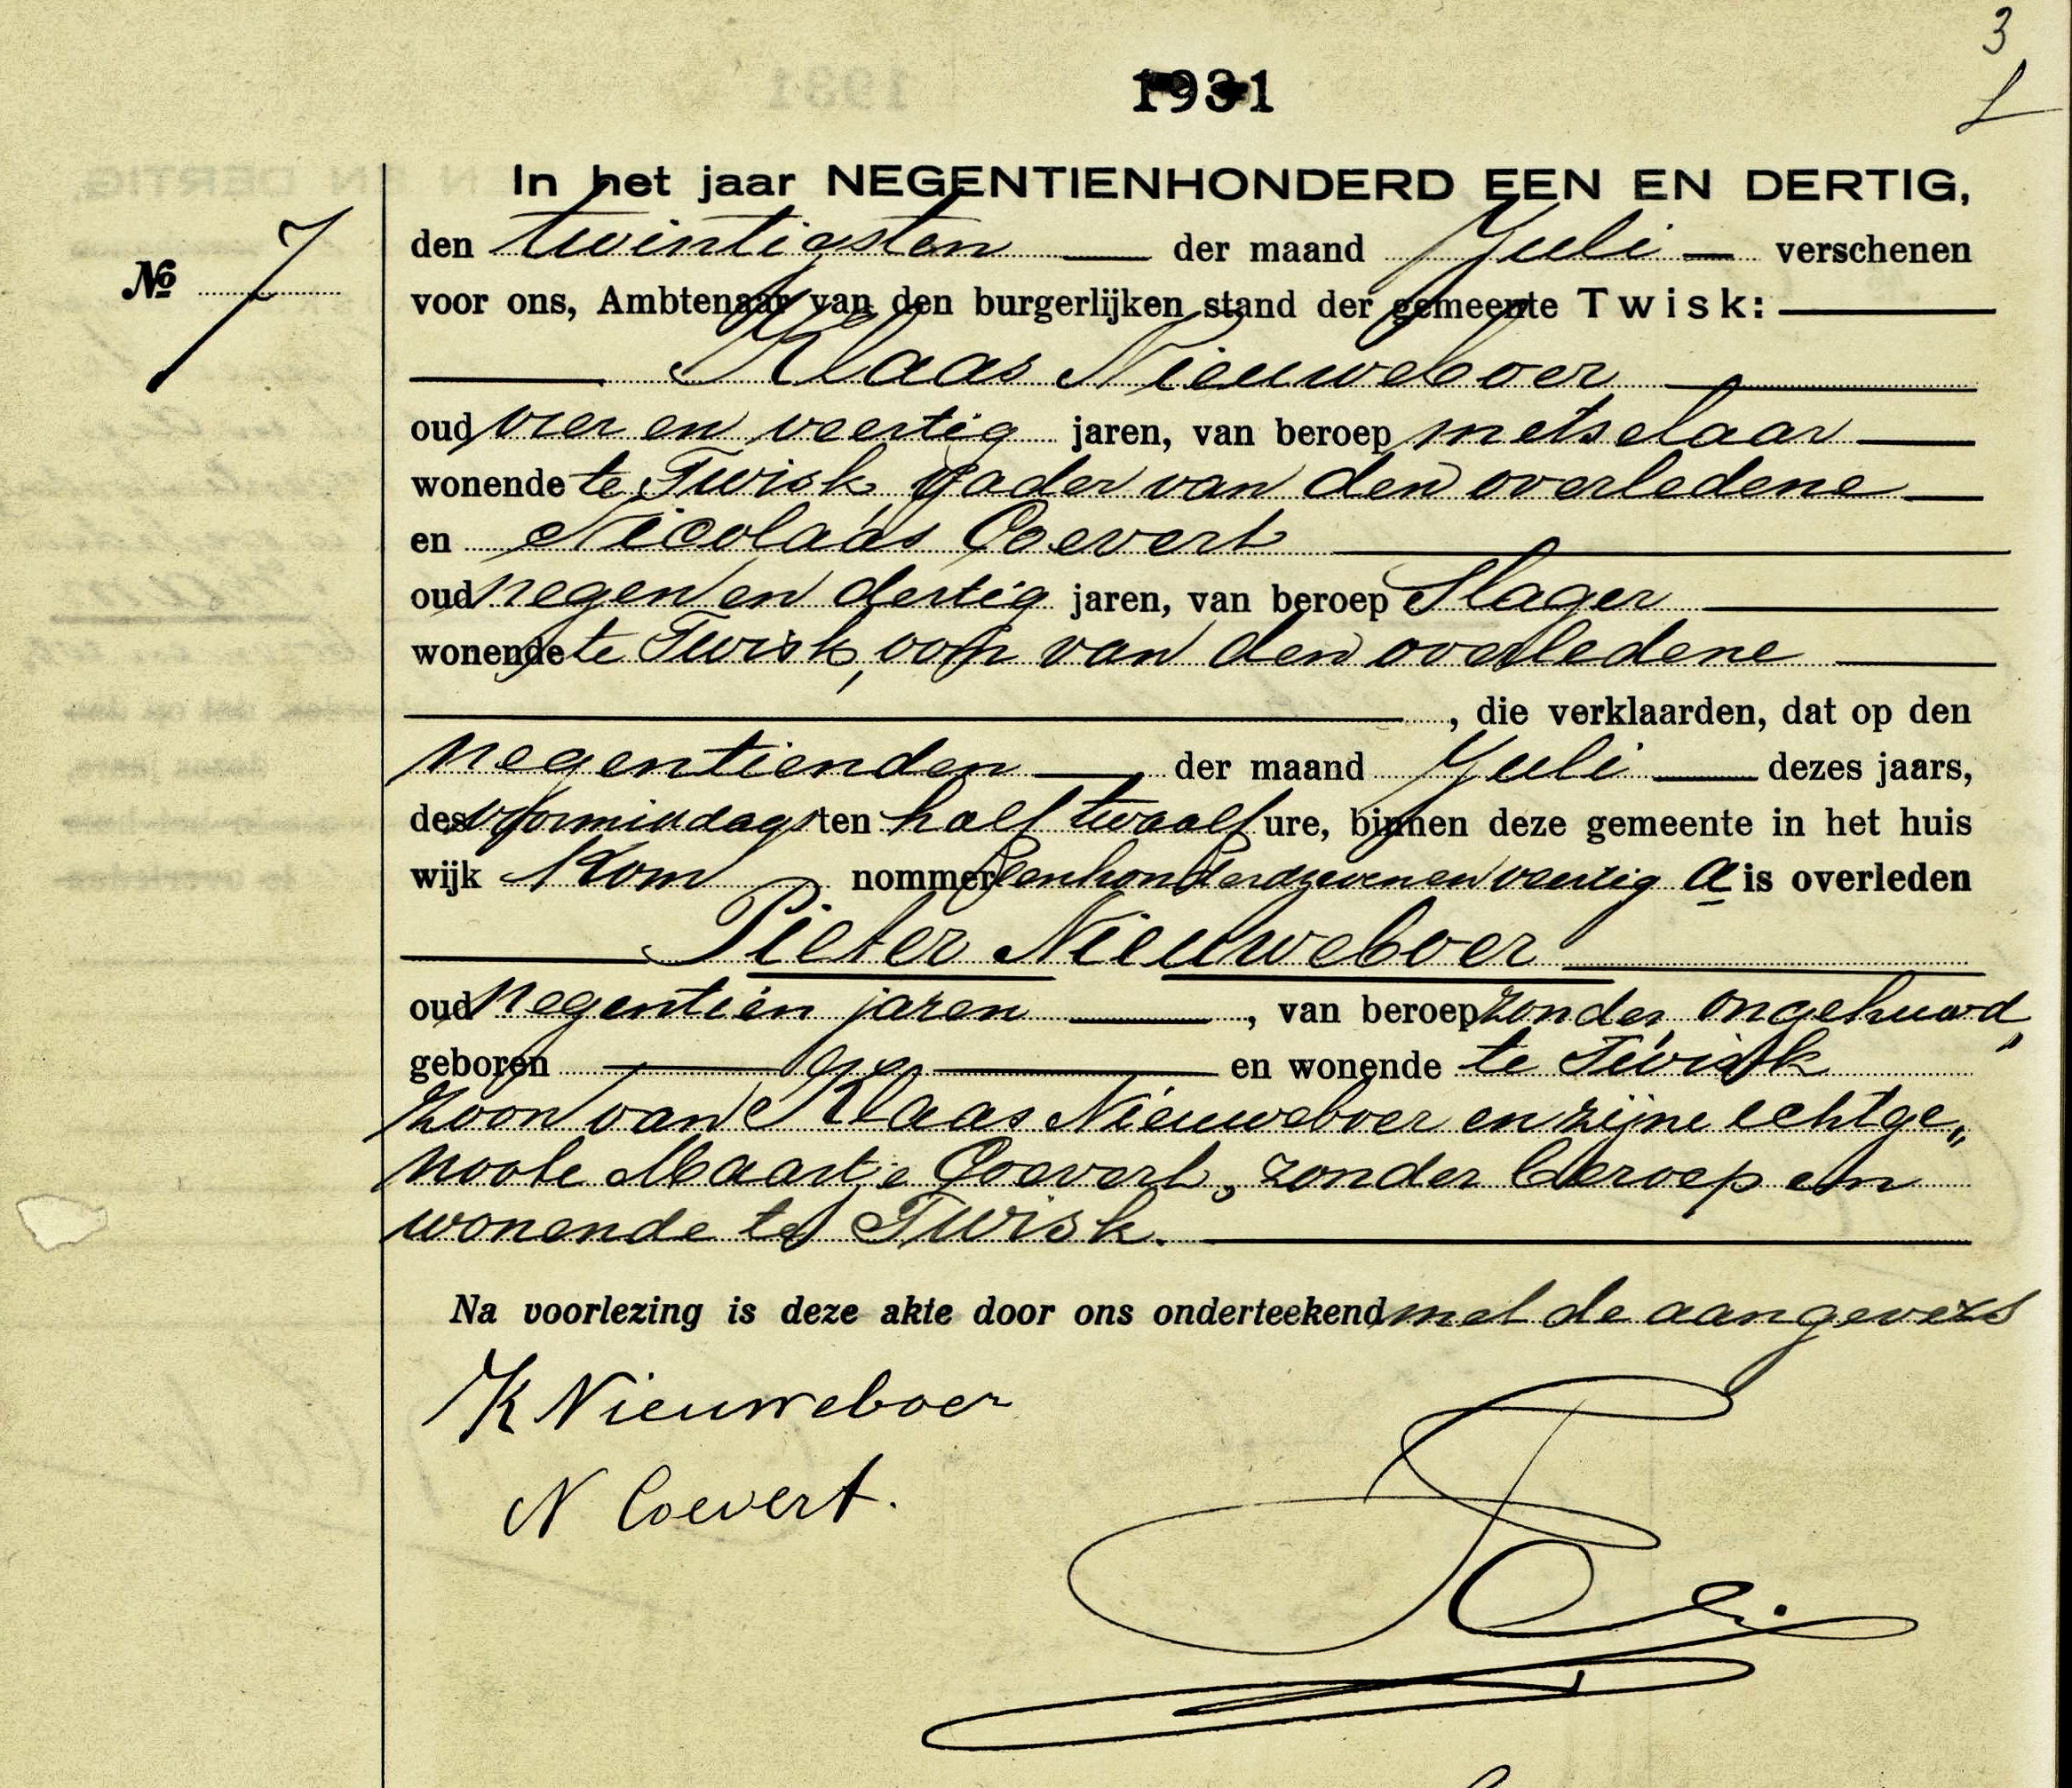 3
1931
In het jaar NEGENTIENHONDERD EEN EN DERTIG,
den twintigsten der maand Juli verschenen
No 7
voor ons, Ambtenaar van den burgerlijken stand der gemeente Twisk:
Klaas Nieuweboer
oud vier en veertig jaren, van beroep metselaar
wonende te Twisk, vader van den overledene
en Nicolaas Coevert
oud negen en dertig jaren, van beroep Slager
wonende te Twisk, oom van den overledene
, die verklaarden, dat op den
negentienden der maand Juli dezes jaars,
des voormiddags ten half twaalf ure, binnen deze gemeente in het huis
wijk Kom nommer eenhonderdzevenenveertig a is overleden
Pieter Nieuweboer
oud negentien jaren, van beroep zonder, ongehuwd,
geboren en wonende te Twisk
zoon van Klaas Nieuweboer en zijne echtge„
noote Maartje Coevert, zonder beroep en
wonende te Twisk.
Na voorlezing is deze akte door ons onderteekend met de aangevers
K Nieuweboer
N Coevert.